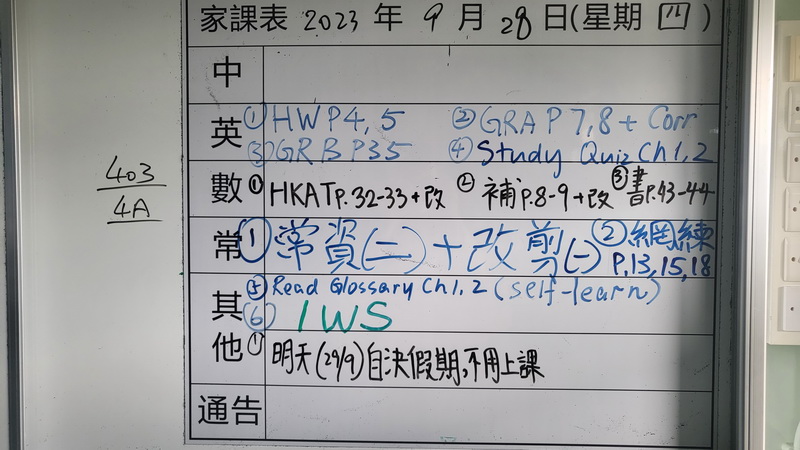 家課表 2023 年 9 月 28 日(星期 四)
中
英 ① HW P4, 5 ② GRA P 7,8 + Corr
③ GR B P35 ④ Study Quiz Ch 1, 2
403
4A
數 ① HKAT P. 32-33 + 改 ② 補 P.8-9 + 改 ③ 書 P.43-44
常 ① 常資(二) + 改剪(一) ② 網練
P.13,15,18
⑤ Read Glossary Ch 1, 2 (self-learn)
其他
⑥ IWS
① 明天(29/9)自決假期,不用上課
通告